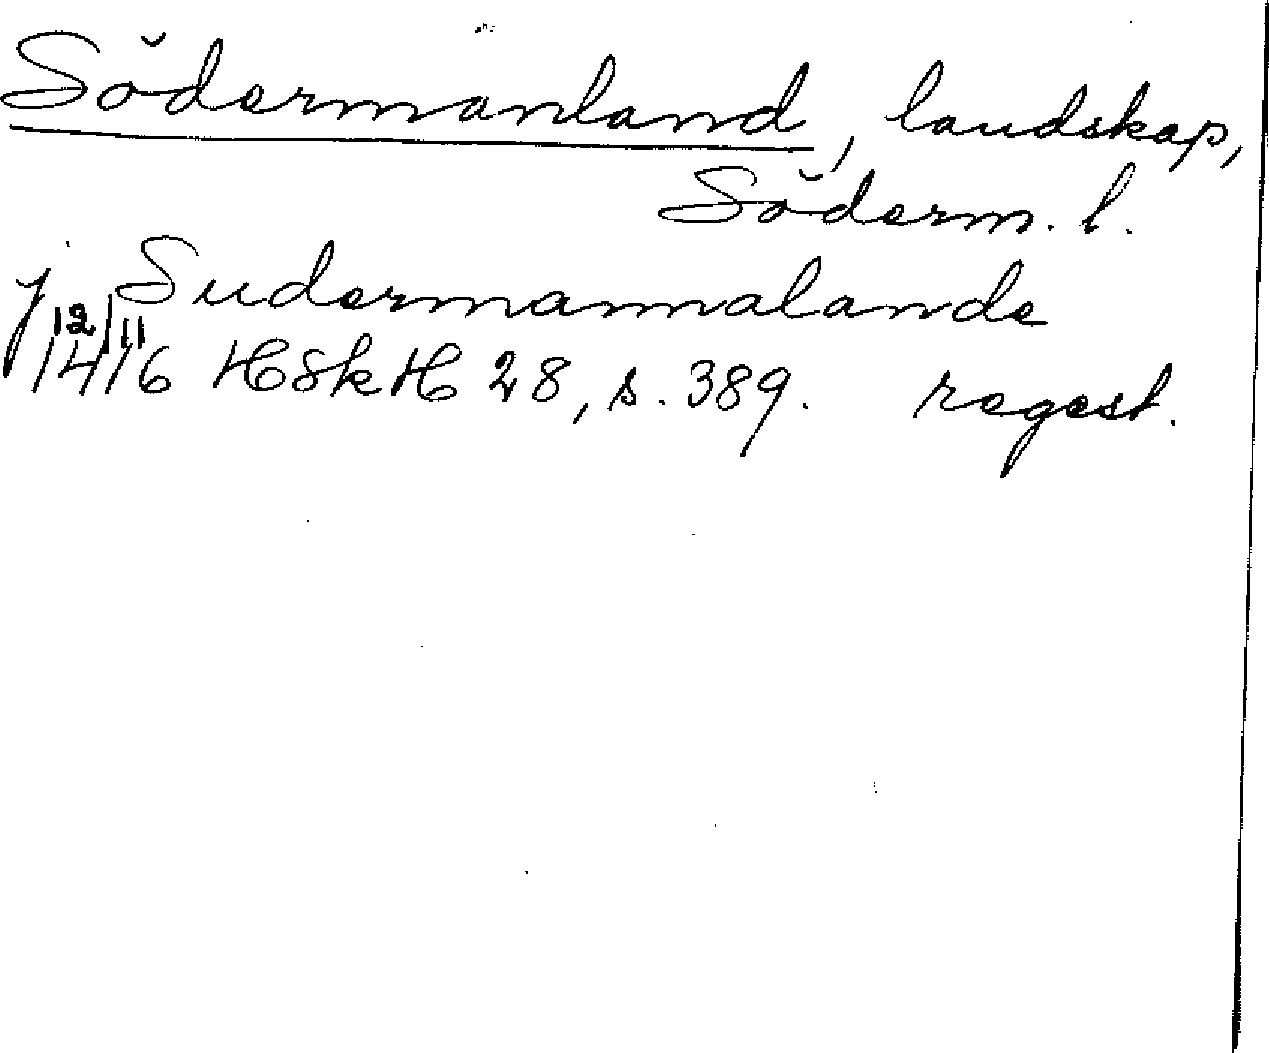 Södermanland, landskap,
Söderm. l.
j Sudermannalande
12/11
1416 HSkH 28, s. 389. regest.